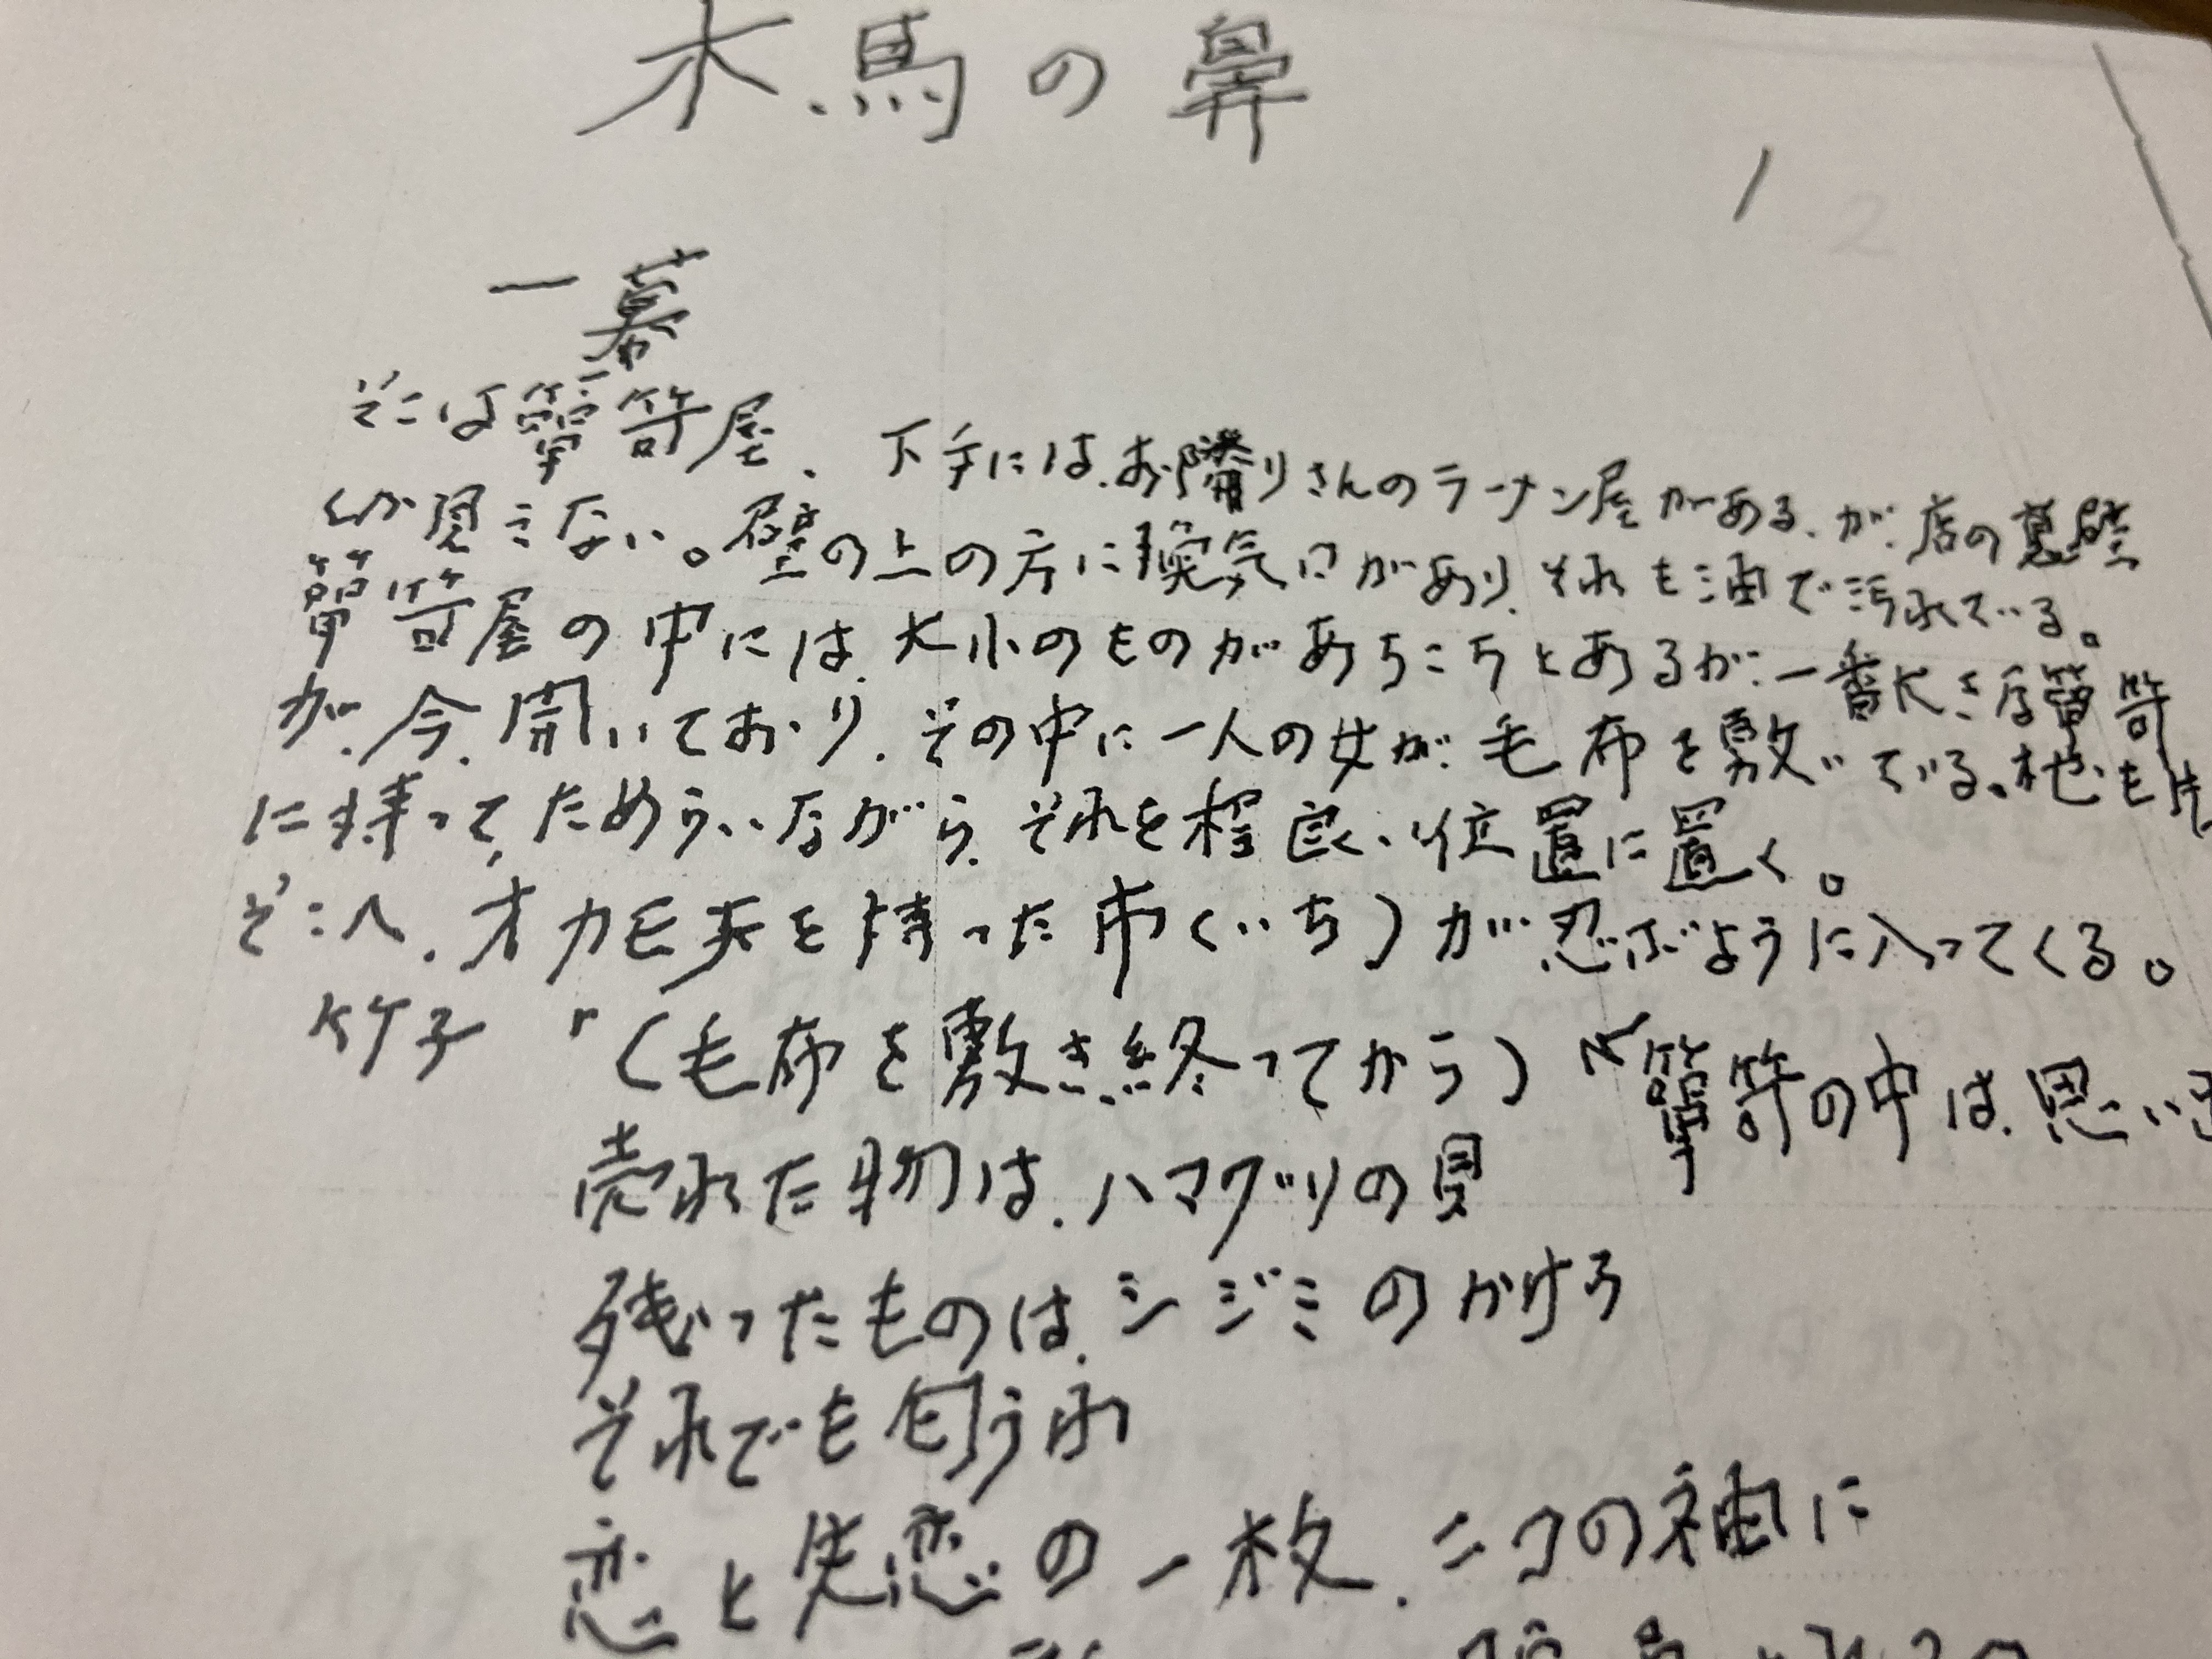 木馬の鼻
1
一幕
そこは簞笥屋、下手には、お隣りさんのラーメン屋がある、が、店の裏壁
しか見えない。壁の上の方に換気口があり、それも油で汚れている。
簞笥屋の中には、大小のものがあちこちとあるが、一番大きな簞笥
が、今、開いており、その中に一人の女が、毛布を敷いている。枕も
に持って、ためらいながら、それを程良い位置に置く。
そこへ、オカモチを持った市(いち)が忍ぶように入ってくる。
竹子「(毛布を敷き終ってから)簞笥の中は、思い
売れた物は、ハマグリの貝
残ったものは、シジミのかけら
それでも匂うわ
恋と失恋の一枚、ニコの袖に